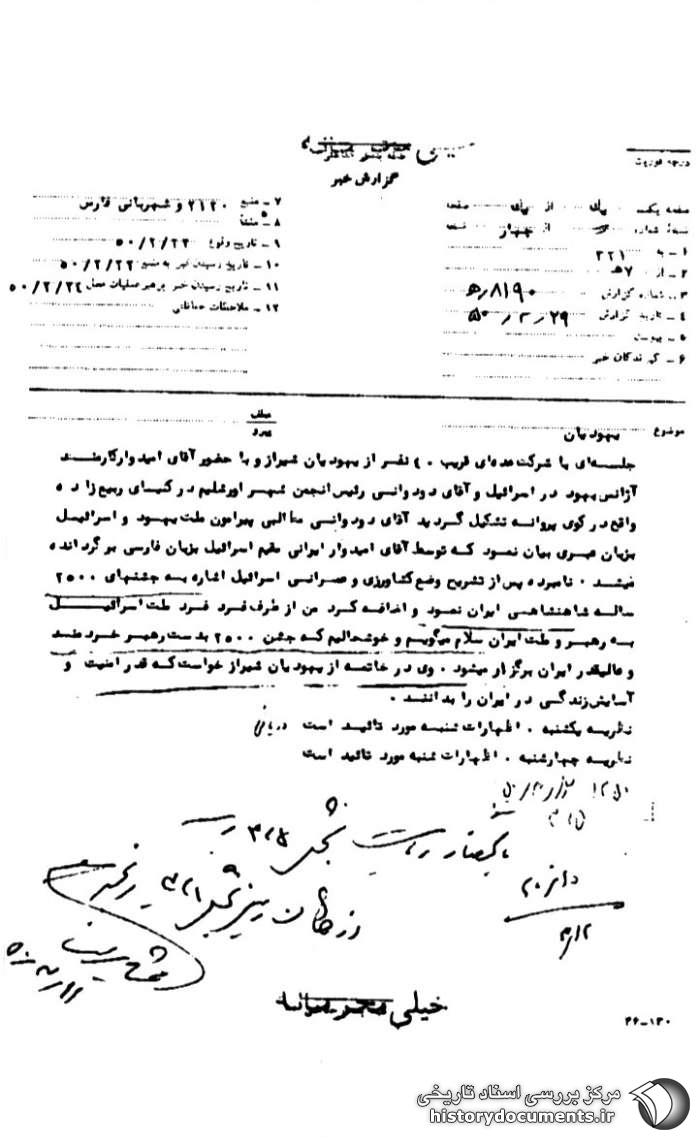 درجه فوریت
گزارش خبر
صفحه یکم از صفحه
نسخه شماره از چهار نسخه
۱ـ به ۳۲۱
۲ـ از ۷ه
۳ـ شماره گزارش ۸۱۹۰/ه
۴ـ تاریخ گزارش ۵۰/۲/۲۹
۵ـ پیوست
۶ـ گیرندگان خبر
۷ـ منبع ۲۱۲۰ و شهربانی فارس
۸ـ منشأ
۹ـ تاریخ وقوع ۵۰/۲/۲۲
۱۰ـ تاریخ رسیدن خبر به منبع ۵۰/۲/۲۲
۱۱ـ تاریخ رسیدن خبر برهبر عملیات محل ۵۰/۲/۲۴
۱۲ـ ملاحظات حفاظتی
موضوع یهودیان
عطف
پیرو
جلسه‌ای با شرکت عده‌ای قریب ۴۰ نفر از یهودیان شیراز و با حضور آقای امیدوار کارمند
آژانس یهود در اسرائیل و آقای دودوانسی رئیس انجمن شهر اورشلیم در کنیسای ربیع زاده
واقع در کوی پروانه تشکیل گردید آقای دودوانسی مطالبی پیرامون ملت یهود و اسرائیل
بزبان عبری بیان نمود که توسط آقای امیدوار ایرانی مقیم اسرائیل بزبان فارسی برگردانده
میشد ۰ نامبرده پس از تشریح وضع کشاورزی و عمرانی اسرائیل اشاره به جشنهای ۲۵۰۰
ساله شاهنشاهی ایران نمود و اضافه کرد من از طرف فرد فرد ملت اسرائیل
به رهبر و ملت ایران سلام میگویم و خوشحالیم که جشن ۲۵۰۰ بدست رهبر خردمند
و عالیقدر ایران برگزار میشود ۰ وی در خاتمه از یهودیان شیراز خواست که قدر امنیت و
آسایش زندگی در ایران را بدانند ۰
نظریه یکشنبه ۰ اظهارات شنبه مورد تائید است
نظریه چهارشنبه ۰ اظهارات شنبه مورد تائید است
خیلی محرمانه
۳۶-۱۳۰
مرکز بررسی اسناد تاریخی
historydocuments.ir